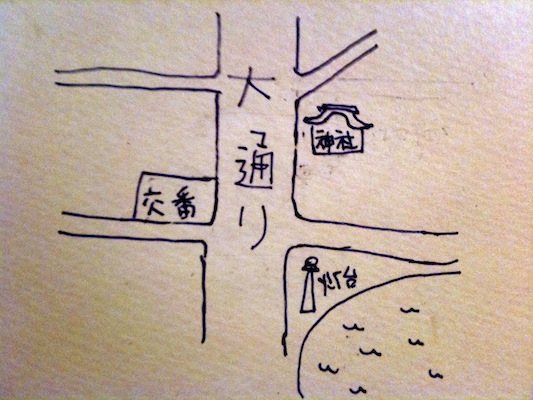 大通り
神社
交番
灯台